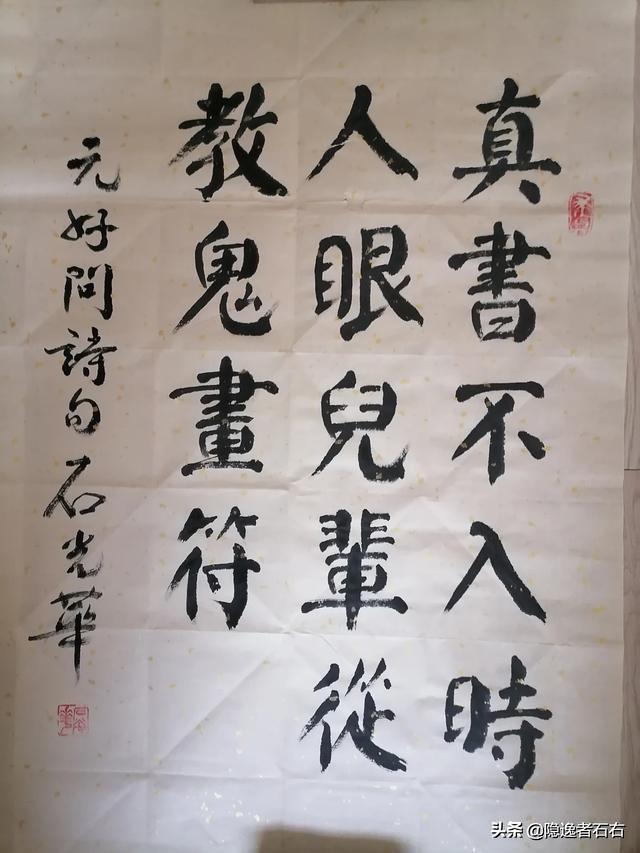 真書不入時
人眼兒輩從
教鬼畫符
元好問詩句石光華
头条 @隐逸者石右